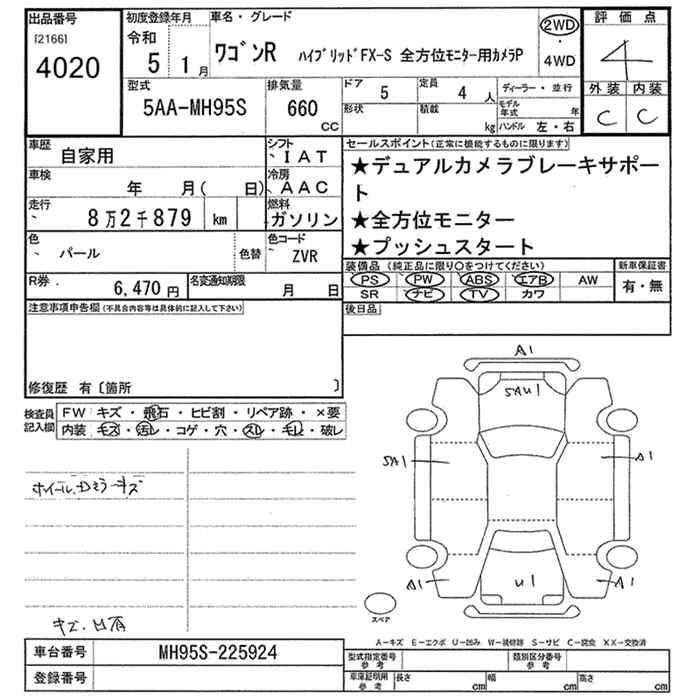 出品番号
[2166]
4020
初度登録年月
令和
5 1月
車名・グレード
ワゴンR ハイブリッドFX-S 全方位モニター用カメラP
2WD
・
4WD
評価点
4
外装 内装
C C
型式
5AA-MH95S
排気量
660
CC
ドア 5
形状
定員 4 人
積載 kg
ディーラー・並行
モデル年式 年
ハンドル 左・右
車歴
自家用
シフト
IAT
車検
年 月( 日)
冷房
AAC
走行
8万2千879 km
燃料
ガソリン
色
パール
色替
色コード
ZVR
R券
6,470 円
名変通知期限
月 日
セールスポイント(正常に機能するものに限ります)
★デュアルカメラブレーキサポート
★全方位モニター
★プッシュスタート
装備品 (純正品に限り○をつけてください)
PS PW ABS エアB AW
SR ナビ TV カワ
新車保証書
有・無
後日品
注意事項申告欄(不具合内容等は具体的に記入して下さい)
修復歴 有〔箇所 〕
検査員記入欄
FW キズ・飛石・ヒビ割・リペア跡・×要
内装 キズ・汚レ・コゲ・穴・スレ・モレ・破レ
A1
SAU1
SA1
A1
A1
U1
A1
スペア
A-キズ E-エクボ U-凹み W-補修跡 S-サビ C-腐食 XX-交換済
車台番号
MH95S-225924
登録番号
型式指定番号
参考
類別区分番号
参考
車庫証明用
参考
長さ cm
幅 cm
高さ cm